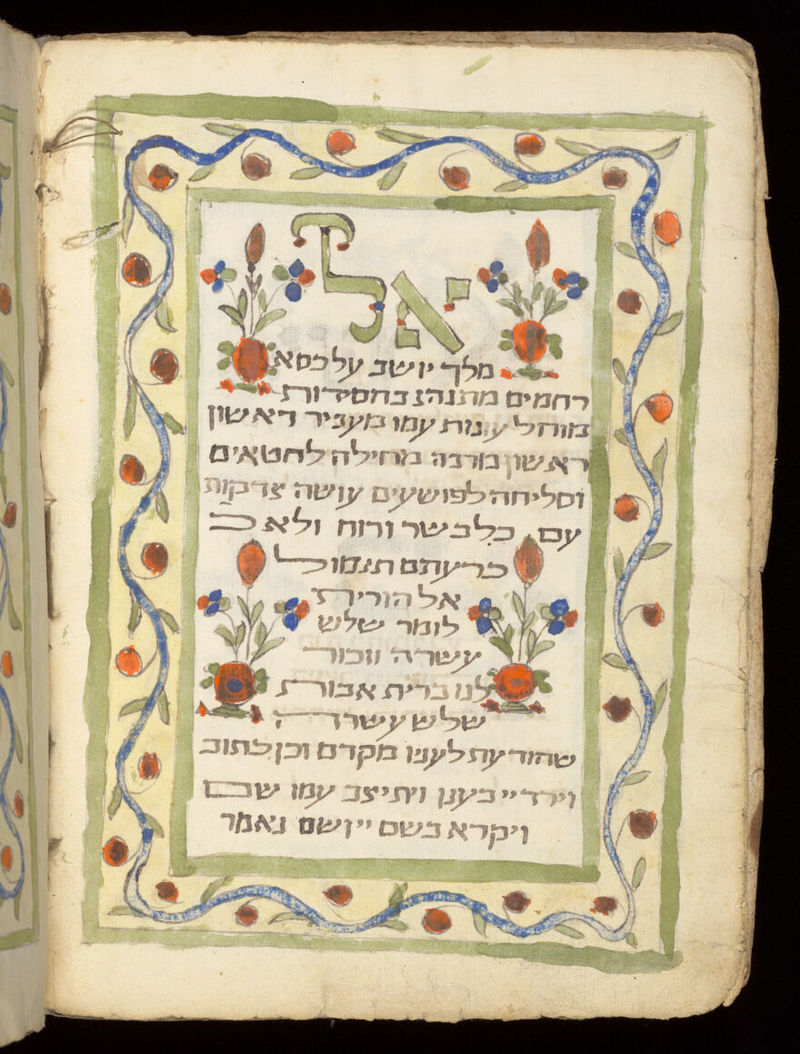 אל
מלך יושב על כסא
רחמים מתנהג בחסידות
מוחל עונות עמו מעביר ראשון
ראשון מרבה מחילה לחטאים
וסליחה לפושעים עושה צדקות
עם כל בשר ורוח ולא כ
כרעתם תגמול
אל הורית
לומר שלש
עשרה וזכור
לנו ברית אבות
שלש עשרה
שהודעת לענו מקדם וכן כתוב
וירד יי בענן ויתיצב עמו שם
ויקרא בשם יי ושם נאמר